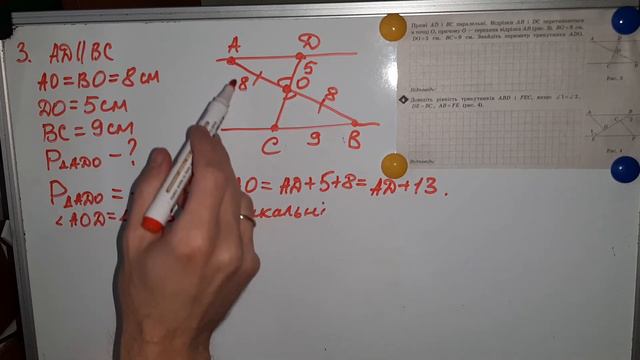 3. AD || BC
AO = BO = 8 см
DO = 5 см
BC = 9 см
P△ADO - ?
A
D
5
8
O
8
C
9
B
P△ADO = AO = AD + 5 + 8 = AD + 13.
∠AOD =
Прямі AD і BC паралельні. Відрізки AB і DC перетинаються
в точці O, причому O — середина відрізка AB (рис. 3), BO=8 см,
DO=5 см, BC=9 см. Знайдіть периметр трикутника ADO.
Рис. 3
Відповідь:
4 Доведіть рівність трикутників ABD і FEC, якщо ∠1=∠2,
DE=BC, AB=FE (рис. 4).
Рис. 4
Відповідь: